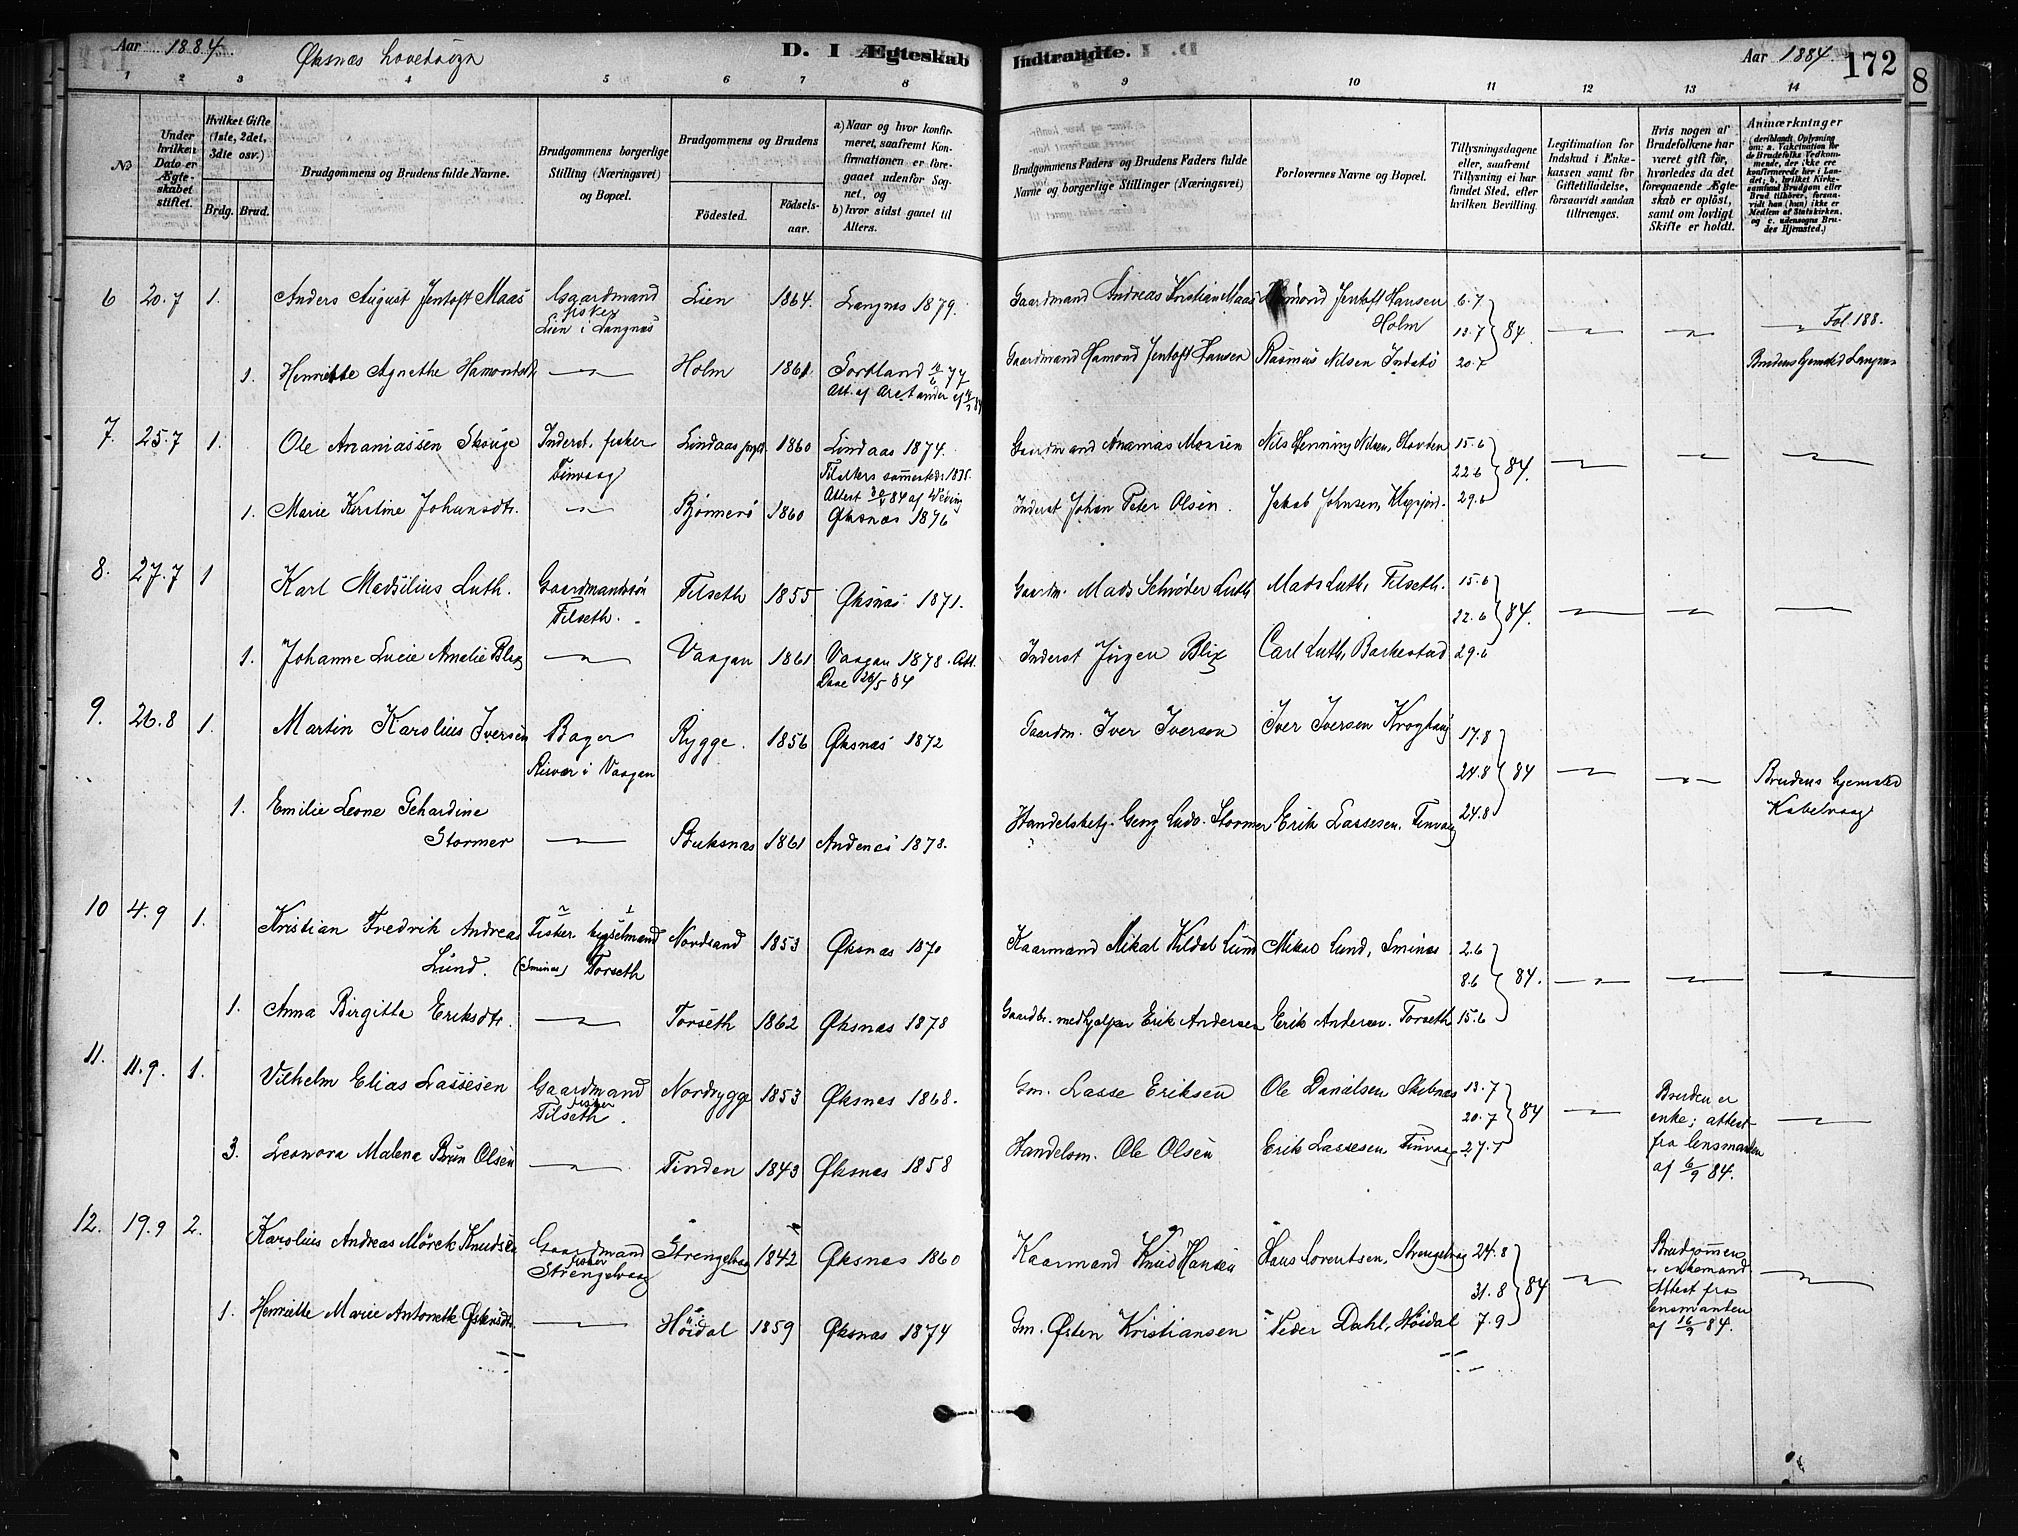 Aar 1884. Øksnæs hovedsogn D. I Ægteskab Indtraadte. Aar 1884. 172
8
1 2 3 4 5 6 7 8 9 10 11 12 13 14
No
Under hvilken Dato er Ægteskabet stiftet.
Hvilket Gifte (1ste, 2det, 3die osv.)
Brdg. Brud.
Brudgommens og Brudens fulde Navne.
Brudgommens borgerlige Stilling (Næringsvei) og Bopæl.
Brudgommens og Brudens
Födested. Födsels-aar.
a) Naar og hvor konfirmeret, saafremt Konfirmationen er foregaaet udenfor Sognet, og
b) hvor sidst gaaet til Alters.
Brudgommens Faders og Brudens Faders fulde Navne og borgerlige Stillinger (Næringsvei)
Forlovernes Navne og Bopæl.
Tillysningsdagene eller, saafremt Tillysning ei har fundet Sted, efter hvilken Bevilling.
Legitimation for Indskud i Enkekassen samt for Giftetilladelse, forsaavidt saadan tiltrænges.
Hvis nogen af Brudefolkene har været gift før, hvorledes da det foregaaende Ægteskab er oplöst, samt om lovligt Skifte er holdt.
Anmærkninger (deriblandt Oplysning om: a. Vakcination for de Brudefolks Vedkommende, der ikke ere konfirmerede her i Landet; b. hvilket Kirkesamfund Brudgom eller Brud tilhører, forsaavidt han (hun) ikke er Medlem af Statskirken, og c. udensogns Brudes Hjemsted.)
6 20.7 1. Anders August Jentoft Maas Gaardmand fisker Lien i Langnæs Lien 1864. Langnes 1879. Gaardmand Andreas Kristian Maas Hamond Jentoft Hansen Holm 6.7 13.7 84. Fol. 188.
1. Henriette Agnethe Hamondsdt Holm 1861. Sortland 77 Att. af Gaardmand Hamond Jentoft Hansen Rasmus Nilsen 20.7 Brudens Langnes
7. 25.7 1. Ole Ananiassen Skauge Inderst, fisker Tinvaag Lindaas 1860 Lindaas 1874. Gaardmand Ananias Monsen Nils Henning Nilsen, Hovden 15.6 22.6 84.
Attest 84 af
1. Marie Kirstine Johansdtr. 1860 Øksnæs 1876 Inderst Johan Peter Olsen. Jakob Johnsen, 29.6
8. 27.7 1 Karl Madsilius Luth. Gaardmandssøn Tilseth. Tilseth 1855 Øksnæs 1871. Gaardm. Mads Schrøder Luth Mads Luth, Tilseth. 15.6 22.6 84.
1. Johanne Lucie Amelie Blix Vaagan 1861 Vaagan 1878. Att. 26/5 84 Inderst Jörgen Blix Carl Luth, Barkestad 29.6
9. 26.8 1. Martin Karolius Iversen Bager i Vaagan Rygge. 1856 Øksnæs 1872 Gaardm. Iver Iversen Iver Iversen 17.8 24.8 84 Brudens hjemsted Kabelvaag
1. Emilie Leone Gehardine Stormer Buksnæs 1861 Andenes 1878. Ludv. Stormer Erik Lassesen, Tinvaag 24.8
10 4.9 1. Kristian Fredrik Andreas Lund. Fisker bygselmand (Smines) Torseth Nordsand 1853 Øksnæs 1870 Kaarmand Mikal Kildal Lund Mikal Lund, Smines 2.6 8.6 84.
1. Anna Birgitta Eriksdtr. Torseth 1862 Øksnæs 1878 Gaardbr. medhjelper Erik Andersen Erik Andersen. Torseth 15.6
11. 11.9. 1. Vilhelm Elias Lassesen Gaardmand fisker Tilseth. Nordrygge 1853 Øksnæs 1868. Gm. Lasse Eriksen Ole Danielsen Skibnæs 13.7 20.7 84 Bruden er enke; attest fra lensmanden af 6/9 84.
3. Leonora Malene Brun Olsen Tinden 1843 Øksnæs 1858 Handelsm. Ole Olsen Erik Lassesen Tinvaag 27.7
12. 19.9 2. Karolius Andreas Mörch Knudsen Gaardmand fisker Strengelvaag Strengelvaag 1842 Øksnæs 1860 Kaarmand Knud Hansen Hans Lorentsen, Strengelvag 24.8 31.8 84 Brudgommen er enkemand Attest fra lensmanden af 16/9 84.
1. Henriette Marie Antonette Østensdtr. Höidal 1859 Øksnæs 1874 Gm. Østen Kristiansen Peder Dahl, Höidal 7.9